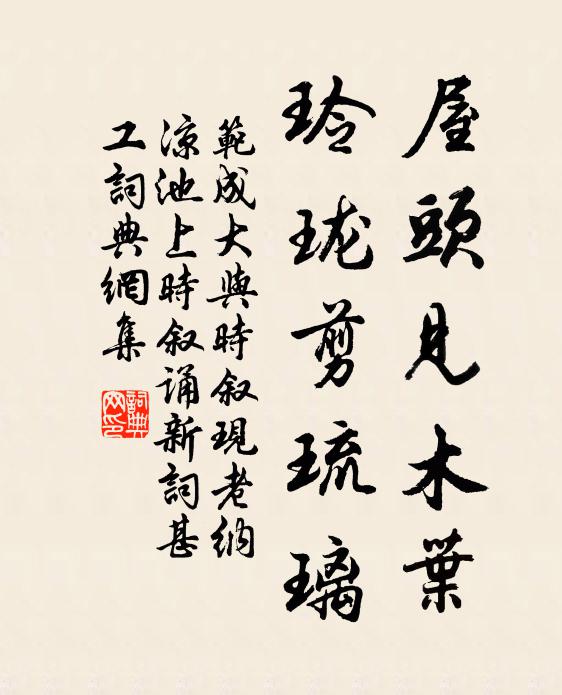 屋頭見木葉
玲瓏剪琉璃
範成大與時叙現老納
涼池上時叙诵新詞甚
工詞典網集
詞典
网印